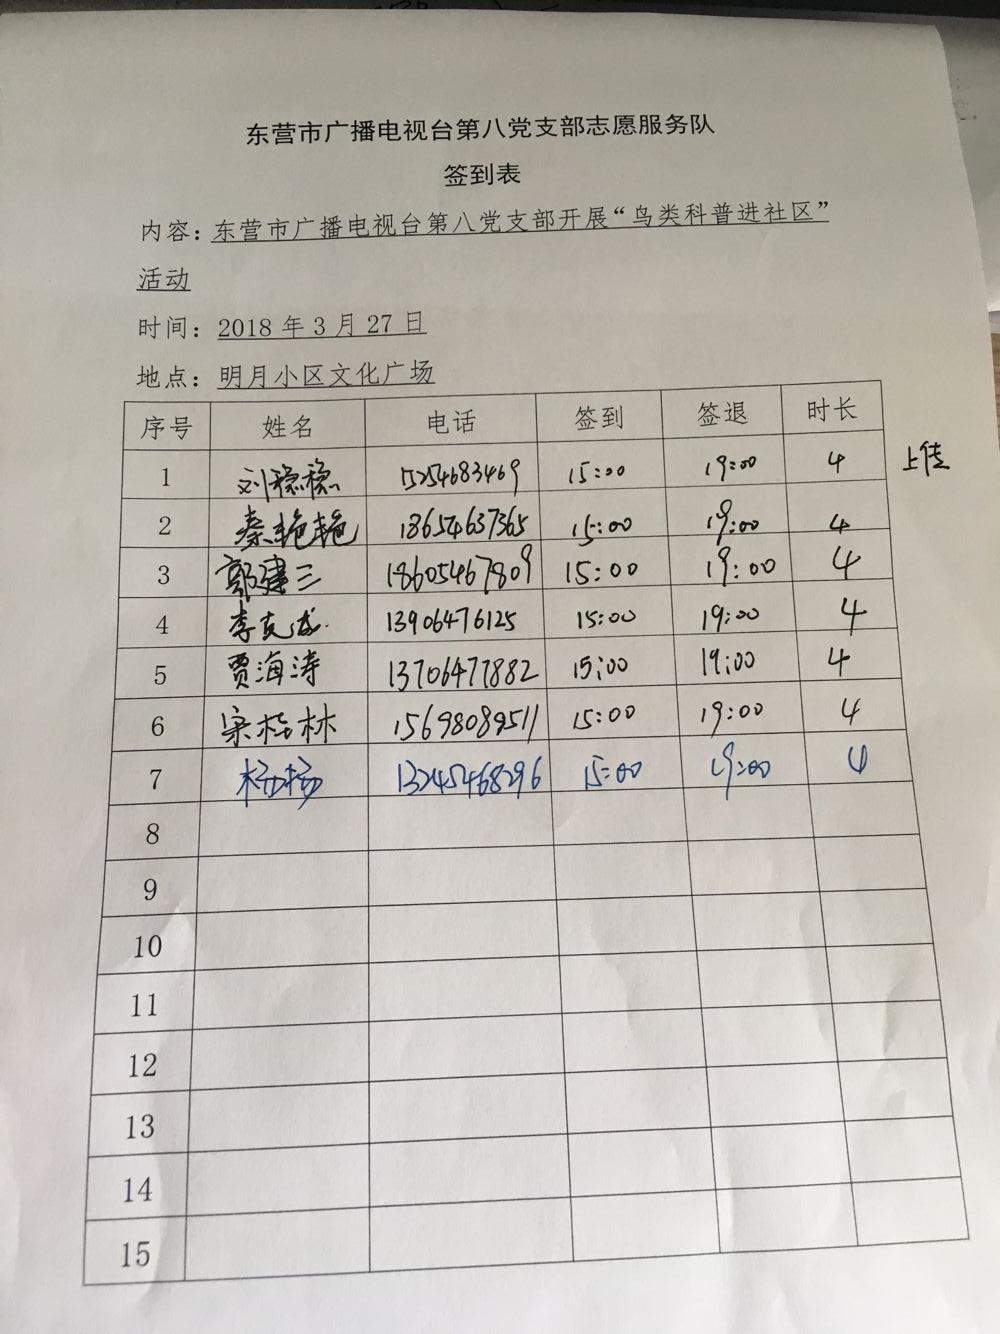 东营市广播电视台第八党支部志愿服务队
签到表
内容：东营市广播电视台第八党支部开展“鸟类科普进社区”
活动
时间：2018 年 3 月 27 日
地点：明月小区文化广场
序号 姓名 电话 签到 签退 时长
1 刘稳稳 15254683469 15:00 19:00 4 上传
2 秦艳艳 18654637365 15:00 19:00 4
3 郭建三 18605467809 15:00 19:00 4
4 李克成 13906476125 15:00 19:00 4
5 贾海涛 13706477882 15:00 19:00 4
6 宋桂林 15698089511 15:00 19:00 4
7 杨杨 13245468296 15:00 19:00 4
8
9
10
11
12
13
14
15